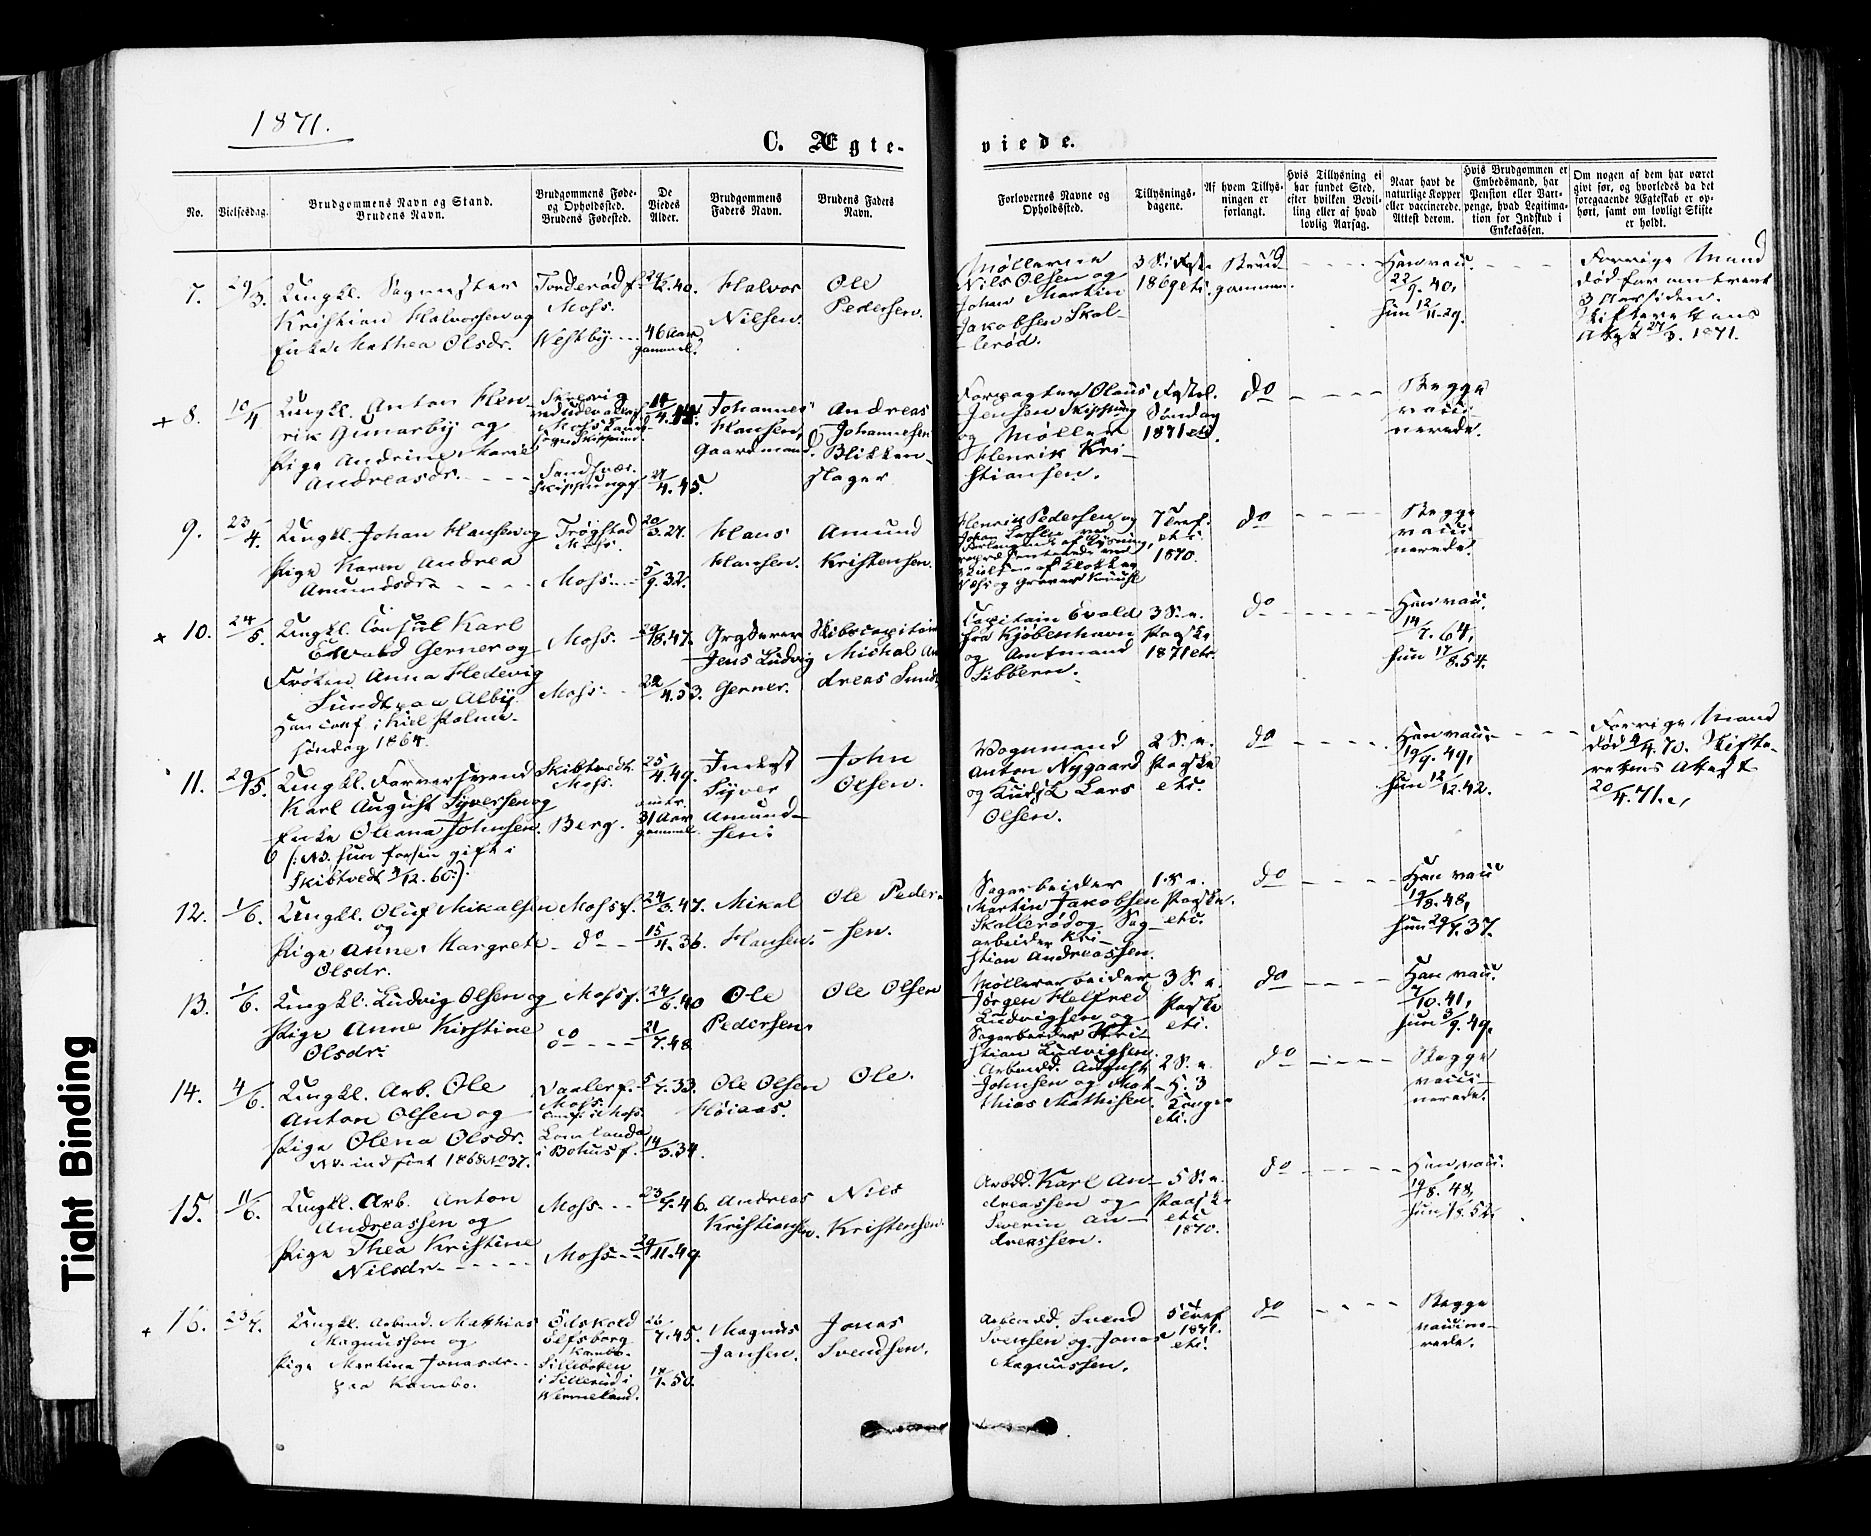 1871.
C. Ægte-
viede.
No.
Vielsesdag.
Brudgommens Navn og Stand.
Brudens Navn.
Brudgommens Føde-
og Opholdssted.
Brudens Fødested.
De
Viedes
Alder.
Brudgommens
Faders Navn.
Brudens Faders
Navn.
Forlovernes Navne og
Opholdssted.
Tillysnings-
dagene.
Af hvem Tillys-
ningen er
forlangt.
Hvis Tillysning ei
har fundet Sted,
efter hvilken Bevil-
ling eller af hvad
lovlig Aarsag.
Naar havt de
naturlige Kopper
eller vaccinerede.
Attest derom.
Hvis Brudgommen er
Embedsmand, har
Pension eller Vart-
penge, hvad Legitima-
tion for Indskud i
Enkekassen.
Om nogen af dem har været
givt før, og hvorledes da det
foregaaende Ægteskab er op-
hørt, samt om lovligt Skifte
er holdt.
7.
29/3.
Ungkl. Sagmester
Kristian Halvorsen og
Enke Mathea Olsdr.
Torderød f.
Moss.
Westby
46 Aar
gammel.
Halvor
Nilsen.
Ole
Pedersen.
Møllerne
Nils Olsen og
Johan Martin
Jakobsen Skal-
lerød.
Brud-
gommen.
Han vacc.
22/9. 40,
hun 12/11. 29.
Forrige Mand
død for omtrent
3 Aar siden.
Skifterettens
Attest 27/3. 1871.
+ 8.
10/4
Ungkl. Anton Hen-
rik Gunarby og
Pige Andrine Marie
Andreasdr.
21/4. 45.
Johannes
Hansen,
Gaardmand.
Andreas
Johannesen
Blikken-
slager
Forpagter Olaus
Jensen Skipping
og Møller
Henrik Kri-
stiansen.
Søndag
1871 etc.
do
Begge
vacci-
nerede.
9.
23/4.
Ungkl. Johan Hansen og
Pige Karen Andrea
Amundsdr
Trøgstad
Moss.
Moss
20/3. 27.
5/9. 32.
Hans
Hansen.
Amund
Kristensen.
Henrik Pedersen og
1870.
do
Begge
vacci-
nerede.
+ 10.
24/5.
Ungkl. Consul Karl
Ewald Gerner og
Frøken Anna Hedevig
Sundt paa Alby.
Han conf. i Kiel Palme-
søndag 1864.
Moss.
Moss.
29/8. 47.
22/4. 53.
Jens Ludvig
Gerner.
Skibscapitain
Michal An
dreas Sundt
Capitain Evald
fra Kjøbenhavn
og Amtmand
Sibbern.
3 S. e.
Paaske
1871 etc.
do
Han vacc.
14/7. 64,
hun 17/8. 54.
11.
29/5.
Ungkl. Farversvend
Karl August Syversen og
Enke Oleana Johnsen.
(: NB. hun forhen gift i
Skibtvedt 4/12. 60:).
Skibtvedt.
Moss.
Berg.
25/4. 49.
omtr.
31 Aar
gammel.
Inderst
Syver
Amund-
sen.
John
Olsen.
Vognmand
Anton Nygaard
og Kudsk Lars
Olsen.
2 S. e.
Paaske
etc.
do
Han vacc.
19/9. 49,
hun 12/12. 42.
Forrige Mand
død 4/4. 70. Skifte-
rettens Attest
20/4. 71.
12.
1/6.
Ungkl. Oluf Mikalsen
og
Pige Anne Margrete
Olsdr.
Moss f.
do
24/3. 47.
15/4. 36.
Mikal
Hansen.
Ole Peder-
sen.
Sagarbeider
Martin Jakobsen
Skallerød og Sag-
arbeider Kri-
stian Andreassen.
1. S. e.
Paaske.
etc.
do
Han vacc
19/8. 48,
hun 29/7. 37.
13.
1/6.
Ungkl. Ludvig Olsen og
Pige Anne Kirstine
Olsdr.
Moss f.
do
24/6. 40
21/7. 48
Ole
Pedersen.
Ole Olsen
Møllerarbeider
Jørgen Helfred
Ludvigsen og
Sagarbeider Kri-
stian Ludvigsen.
3 S. e.
Paaske
etc.
do
Han vacc.
7/10. 41,
hun 3/9. 49.
14.
4/6.
Ungkl. Arb. Ole
Anton Olsen og
Pige Olena Olsdr.
Nr. indført 1868 No 37.
Vaaler f.
Moss.
conf. i Moss.
i Bohus f.
5/7. 33.
14/3. 34.
Ole Olsen
Høiaas.
Ole.
Arbmdd. August
Johnsen og Mat-
thias Mathisen.
2 S. e.
H. 3
Konger
etc.
do
Begge
vacci-
nerede.
15.
11/6.
Ungkl. Arb. Anton
Andreassen og
Pige Thea Kristine
Nilsdr
Moss
Moss
23/7. 46.
29/11. 49.
Andreas
Kristiansen.
Nils
Kristensen.
Arbdd. Karl An-
dreassen og
Severin An-
dreassen.
5 S. e.
Paaske
etc
1870.
do
Han vacc.
19/8. 48,
+ 16.
23/7.
Ungkl. Arbmd. Matthias
Magnusson og
Pige Martina Jonasdr.
fra Kambo.
Ødskold
Elfsborg
Kambo.
Silleboten
i Sillerud i
Wermeland.
26/7. 45.
Magnus
Jansen.
Jonas
Svendsen.
Arbmdd. Svend
Svensen og Jonas
Magnussen.
1871.
etc.
do
Begge
vaccine-
rede.
Tight Binding